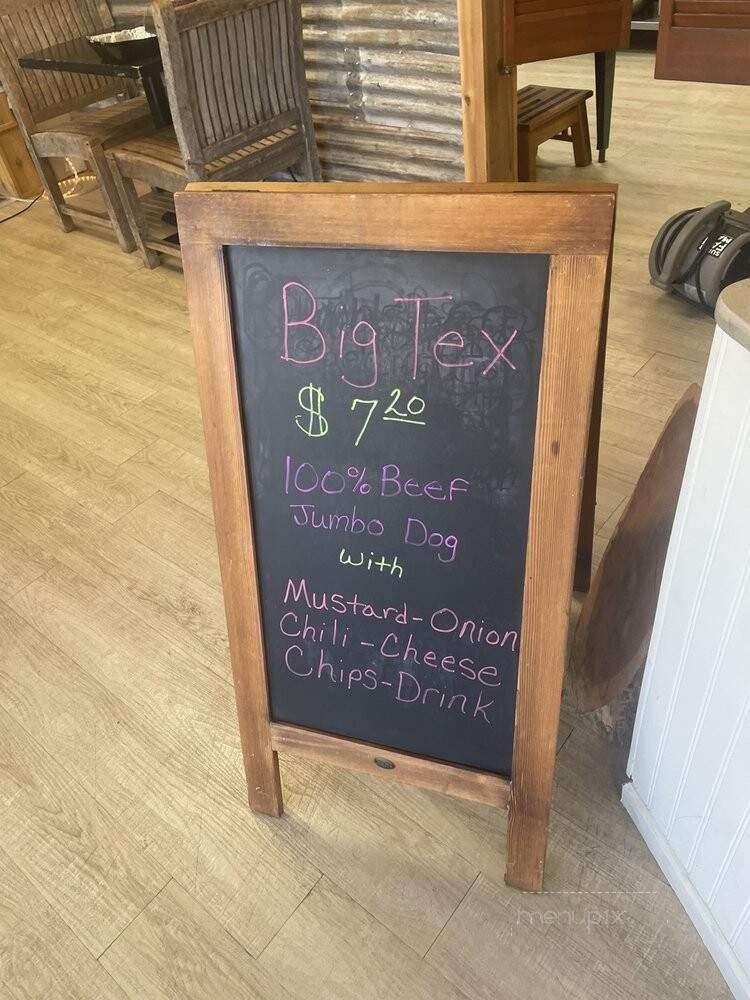 Big Tex
$ 7 20
100% Beef
Jumbo Dog
with
Mustard-Onion
Chili-Cheese
Chips-Drink
menupix